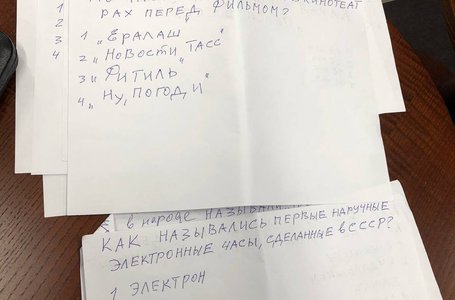 1
2
3
4
РАХ ПЕРЕД ФИЛЬМОМ?
1 „ЕРАЛАШ"
2 „НОВОСТИ ТАСС"
3 „ФИТИЛЬ"
4 „НУ, ПОГОДИ"
в народе НАЗЫВАЛИ
КАК НАЗЫВАЛИСЬ ПЕРВЫЕ НАРУЧНЫЕ
ЭЛЕКТРОННЫЕ ЧАСЫ, СДЕЛАННЫЕ В СССР?
1 ЭЛЕКТРОН